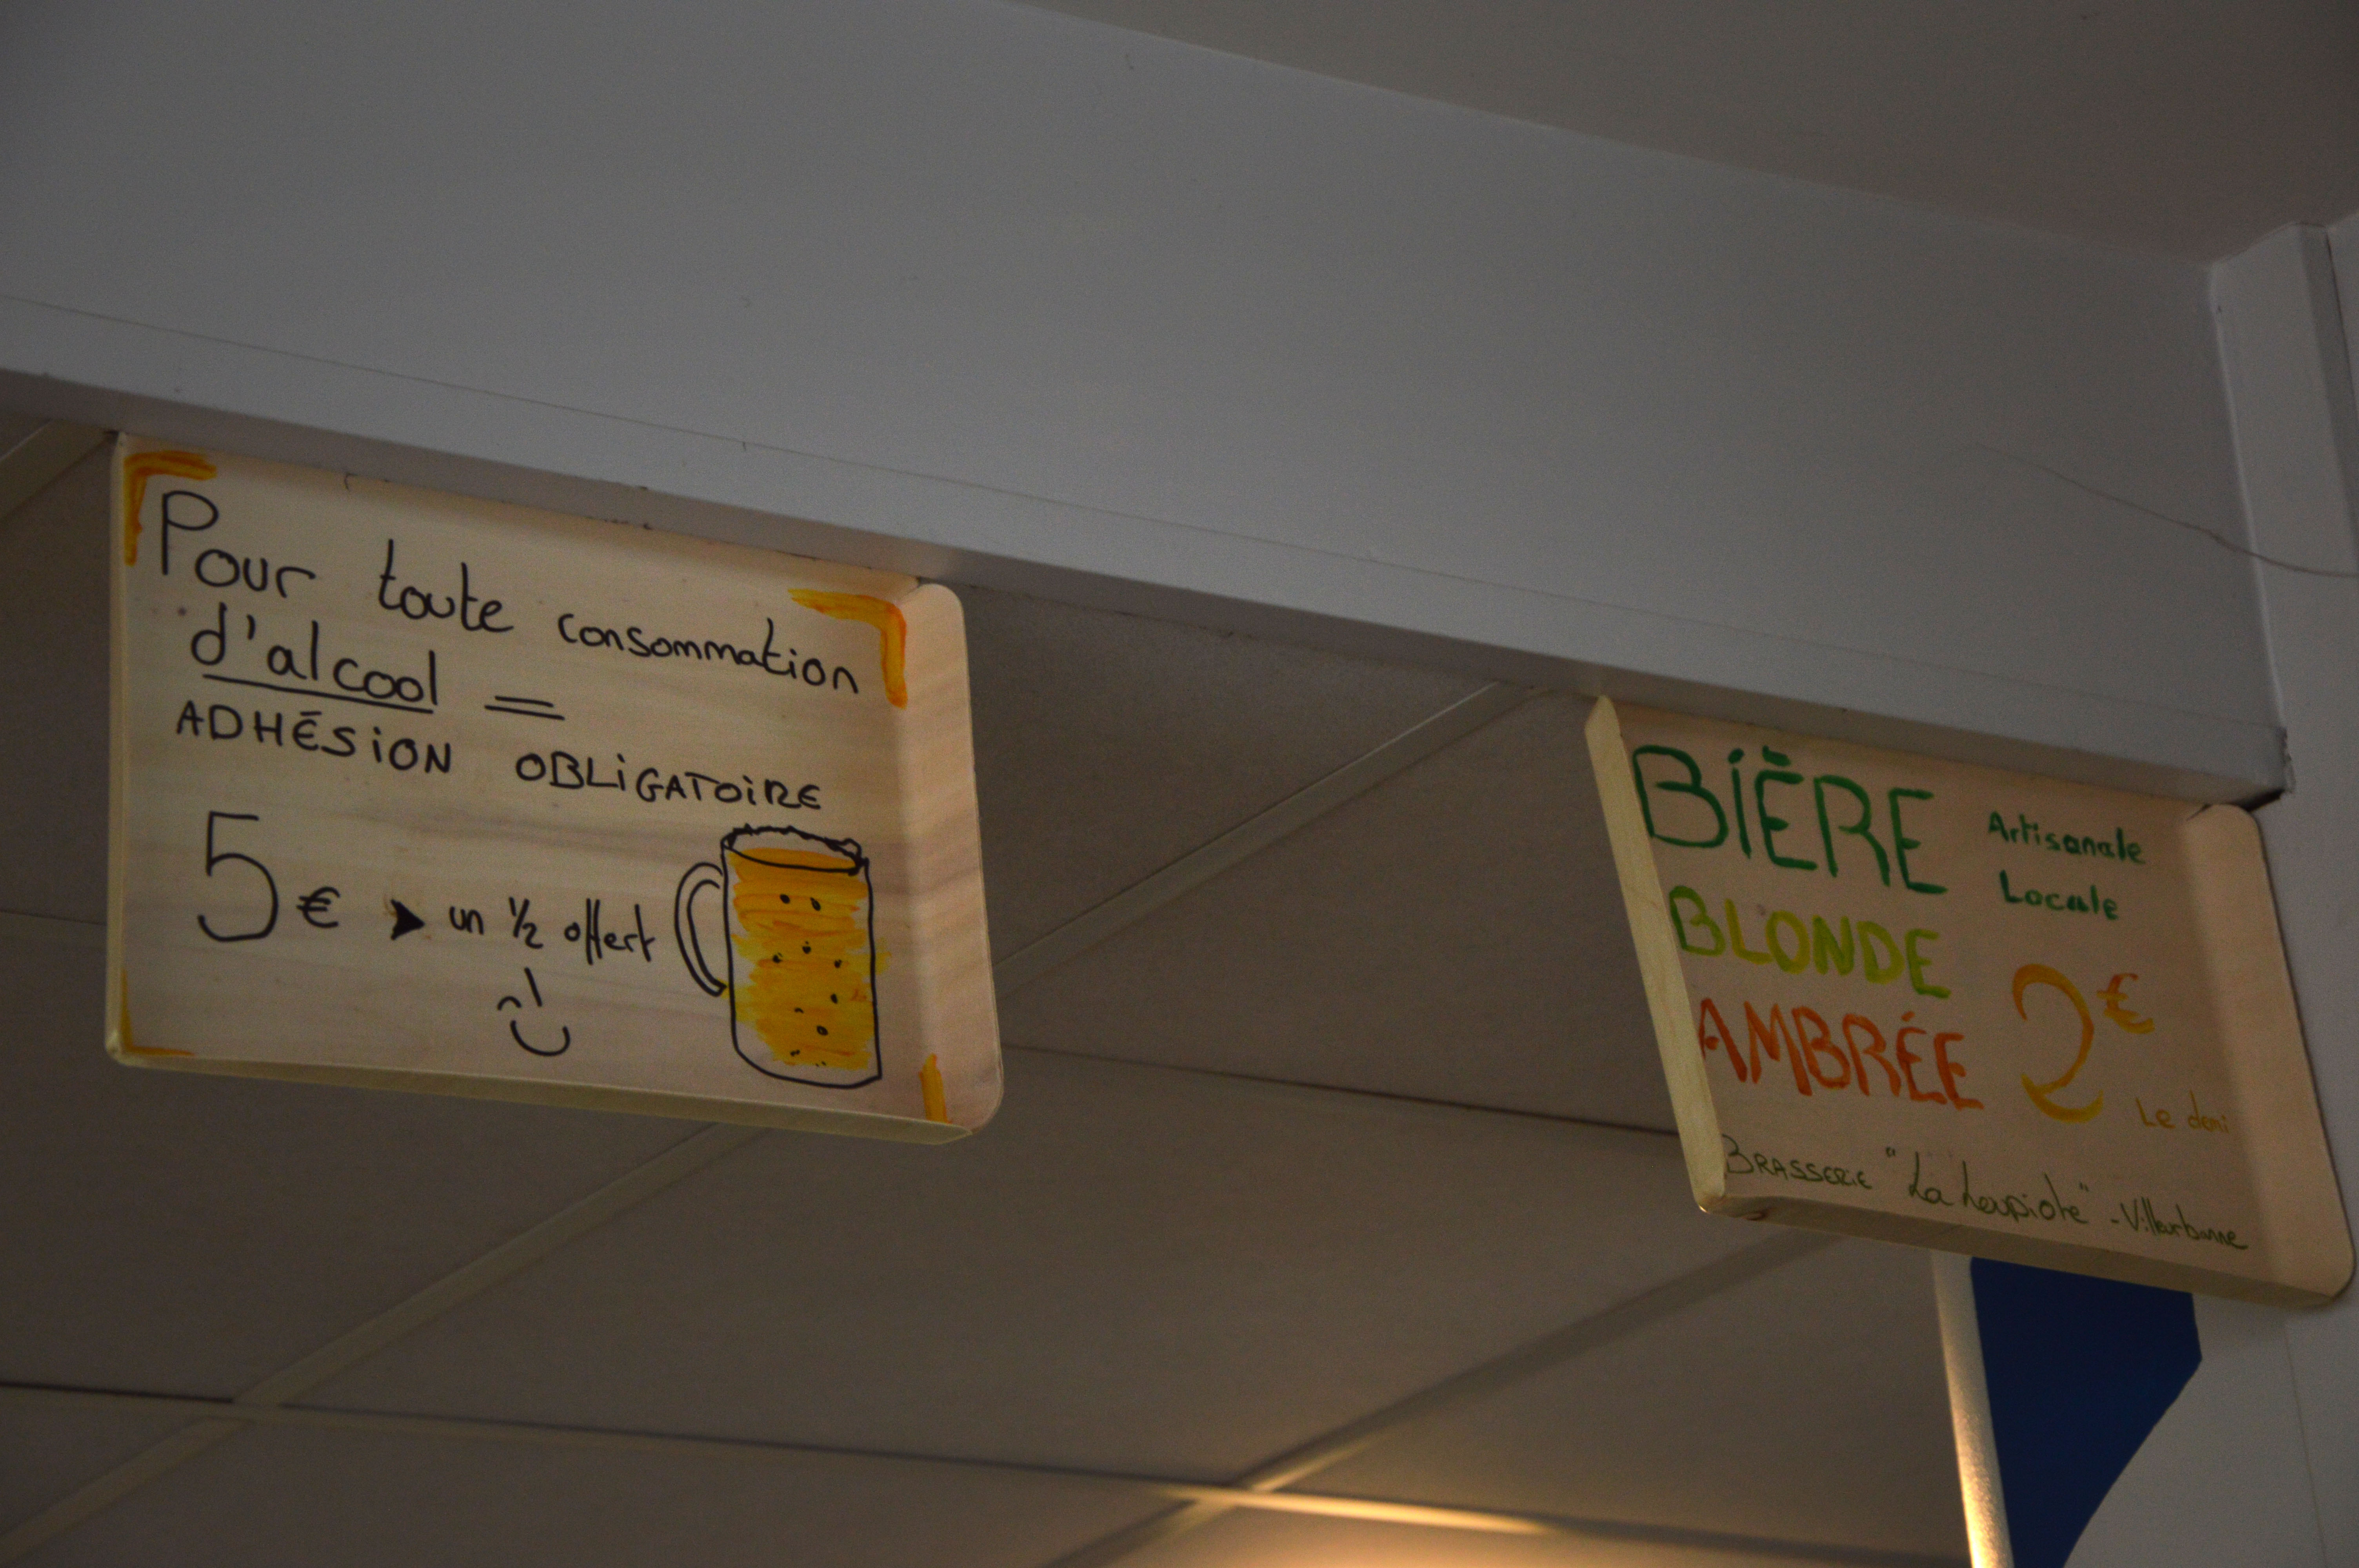 Pour toute consommation
d'alcool =
ADHÉSION OBLIGATOIRE
5 € ➤ un 1/2 offert
BIÈRE Artisanale
Locale
BLONDE
AMBRÉE 2€
Le demi
BRASSERIE "La Loupiote" - Villeurbanne